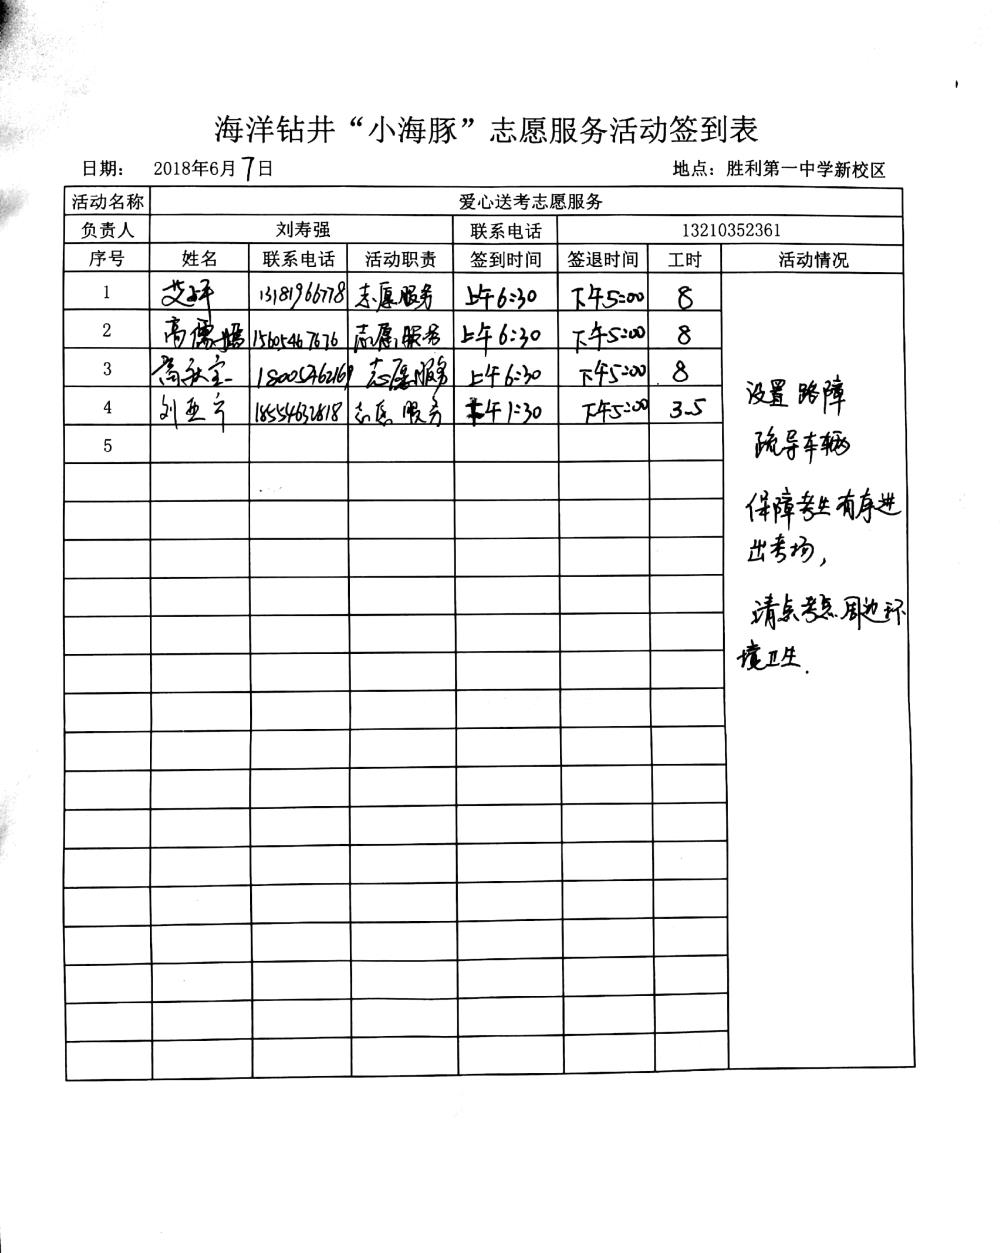 海洋钻井“小海豚”志愿服务活动签到表
日期： 2018年6月7日 地点：胜利第一中学新校区
活动名称 爱心送考志愿服务
负责人 刘寿强 联系电话 13210352361
序号 姓名 联系电话 活动职责 签到时间 签退时间 工时 活动情况
1 13181966778 志愿服务 上午6:30 下午5:00 8
2 15605467676 志愿服务 上午6:30 下午5:00 8
3 18005462169 志愿服务 上午6:30 下午5:00 8
4 刘亚 18554632818 志愿服务 下午1:30 下午5:00 3.5
5
设置路障
疏导车辆
保障考生有序进
出考场，
清点考点周边环
境卫生.